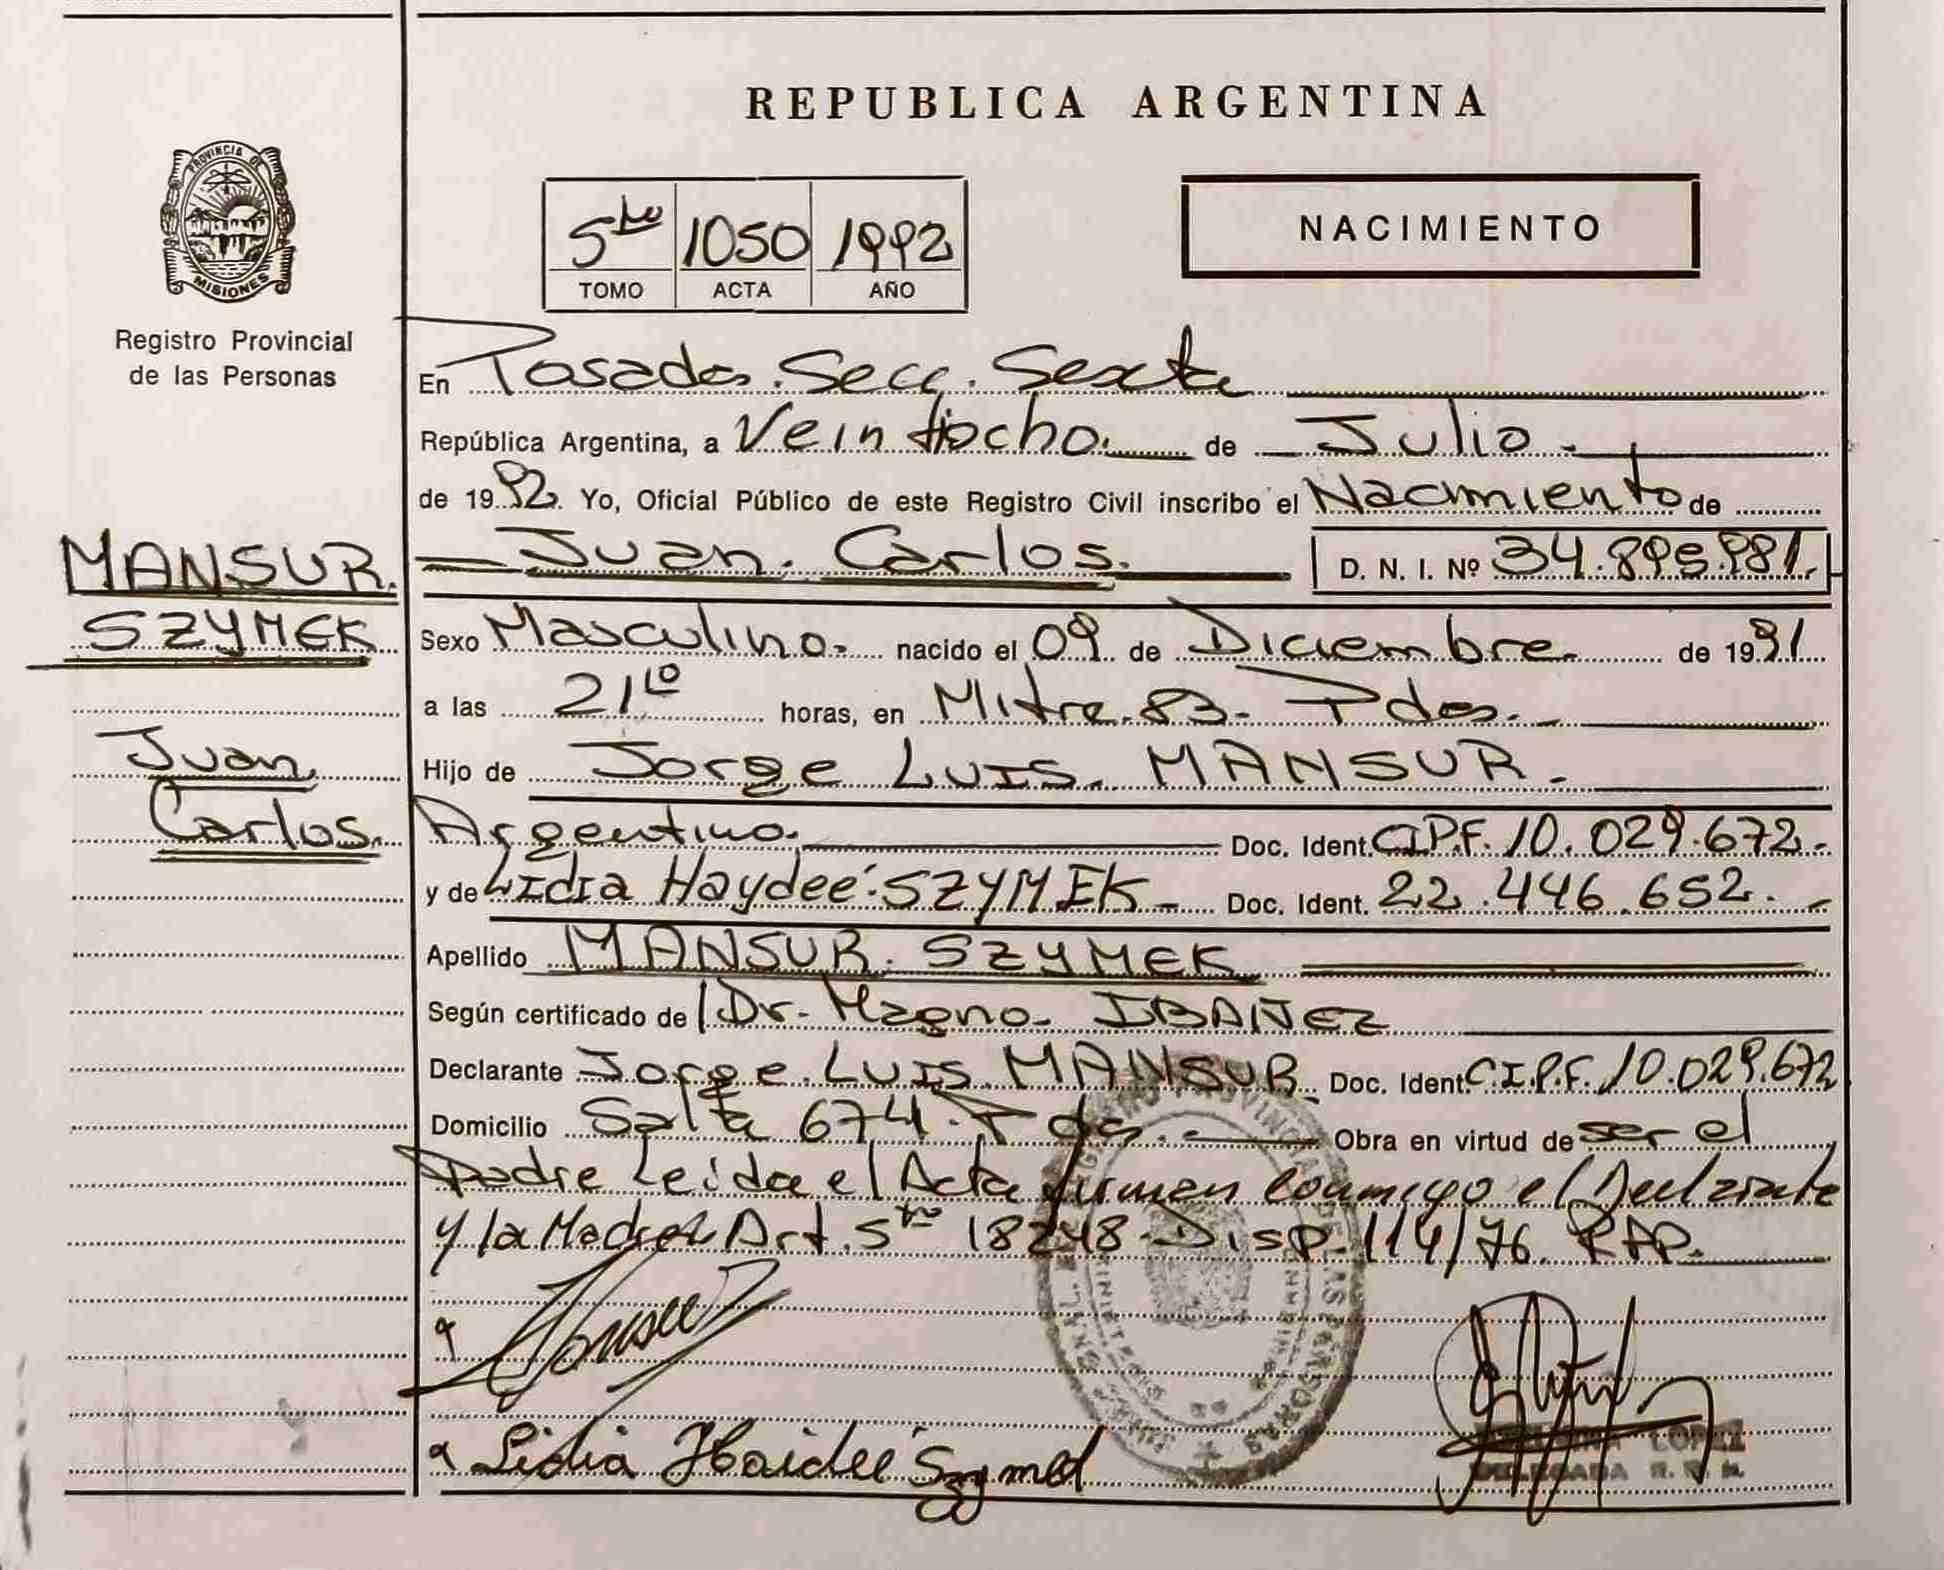 REPUBLICA ARGENTINA
PROVINCIA DE
MISIONES
Registro Provincial
de las Personas
5to 1050 1992
TOMO ACTA AÑO
NACIMIENTO
En Posadas. Secc. Sexta
República Argentina, a Veintiocho. de Julio.
de 1992. Yo, Oficial Público de este Registro Civil inscribo el Nacimiento de
MANSUR.
SZYMEK
Juan
Carlos.
Juan. Carlos. D. N. I. Nº 34.895.981.
Sexo Masculino. nacido el 09 de Diciembre. de 1991
a las 21 10 horas, en Mitre. 83. Pdas.
Hijo de Jorge Luis. MANSUR.
Argentino. Doc. Ident. C.I.P.F. 10.029.672.
y de Lidia Haydeé. SZYMEK Doc. Ident. 22.446.652.
Apellido MANSUR. SZYMEK
Según certificado de Dr. Magno. IBAÑEZ
Declarante Jorge. Luis. MANSUR Doc. Ident. C.I.P.F. 10.029.672
Domicilio Salta 674. Pdas. Obra en virtud de ser el
Padre Leida el Acta firman conmigo el Declarante
y la Madre Art. 5to 18248. Disp. 114/76. RAP.
Lidia Haideé Szymek
LOPEZ
DELEGADA R. P.